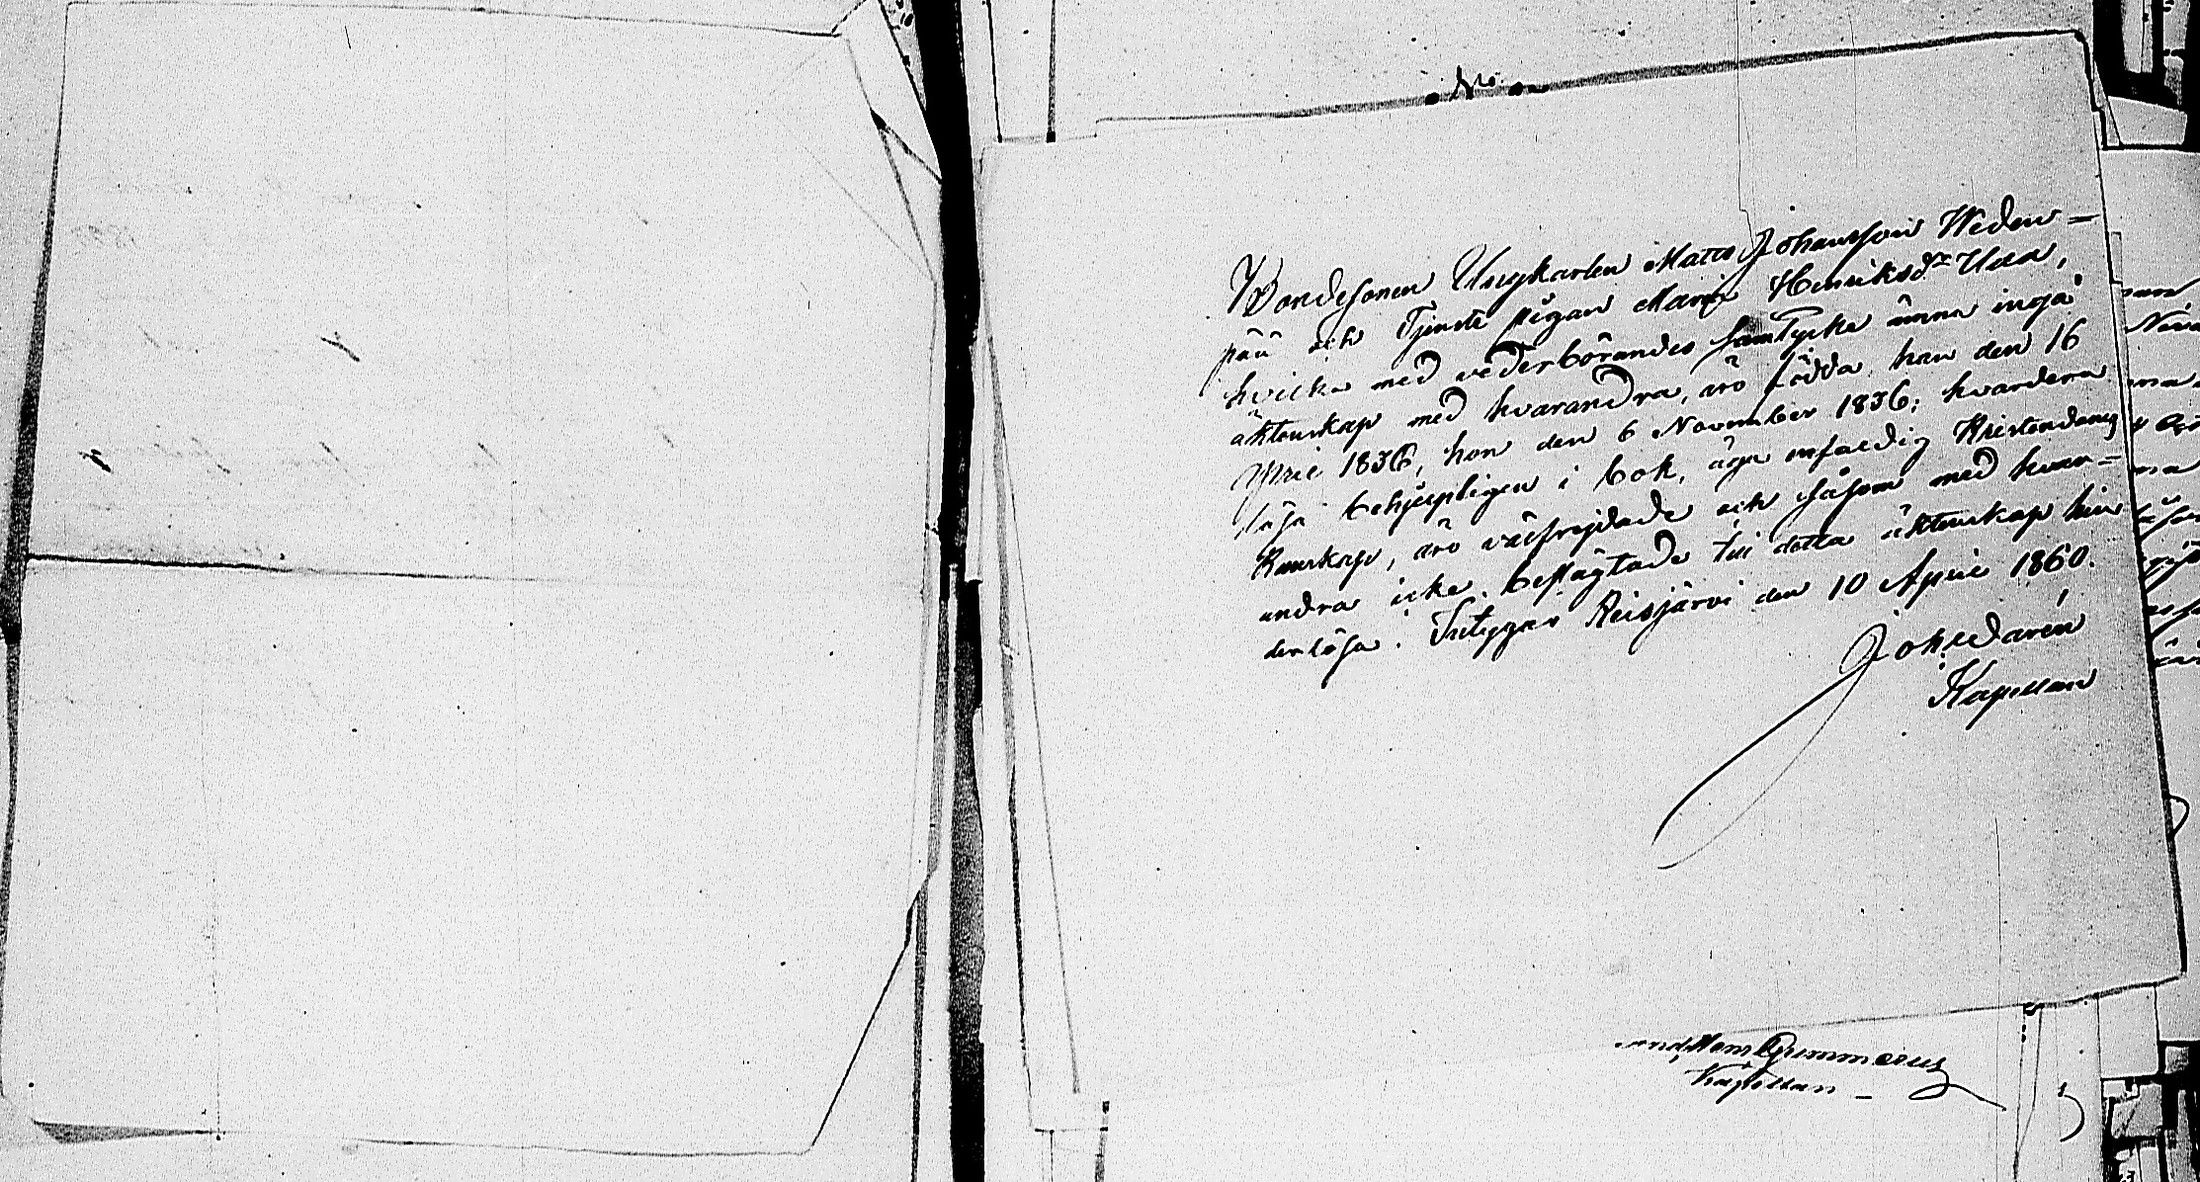 No
Bondesonen Ungkarlen Matts Johansson Weden=
pää och Tjenste pigan Maria Henriksdr Uusa,
hvilka med vederbörandes samtycke ämna ingå
äktenskap med hvarandra, äro födda han den 16
April 1836, hon den 6 November 1836; hvardera
läsa behjelpligen i bok, äga enfaldig Kristendoms
kunskap, äro välfrejdade och såsom med hvar=
andra icke beslägtade till detta äktenskap hin
derlösa. Intygar Reisjärvi den 10 April 1860.
Joh. Edarén
Kapellan
Gummerus
Kapellan